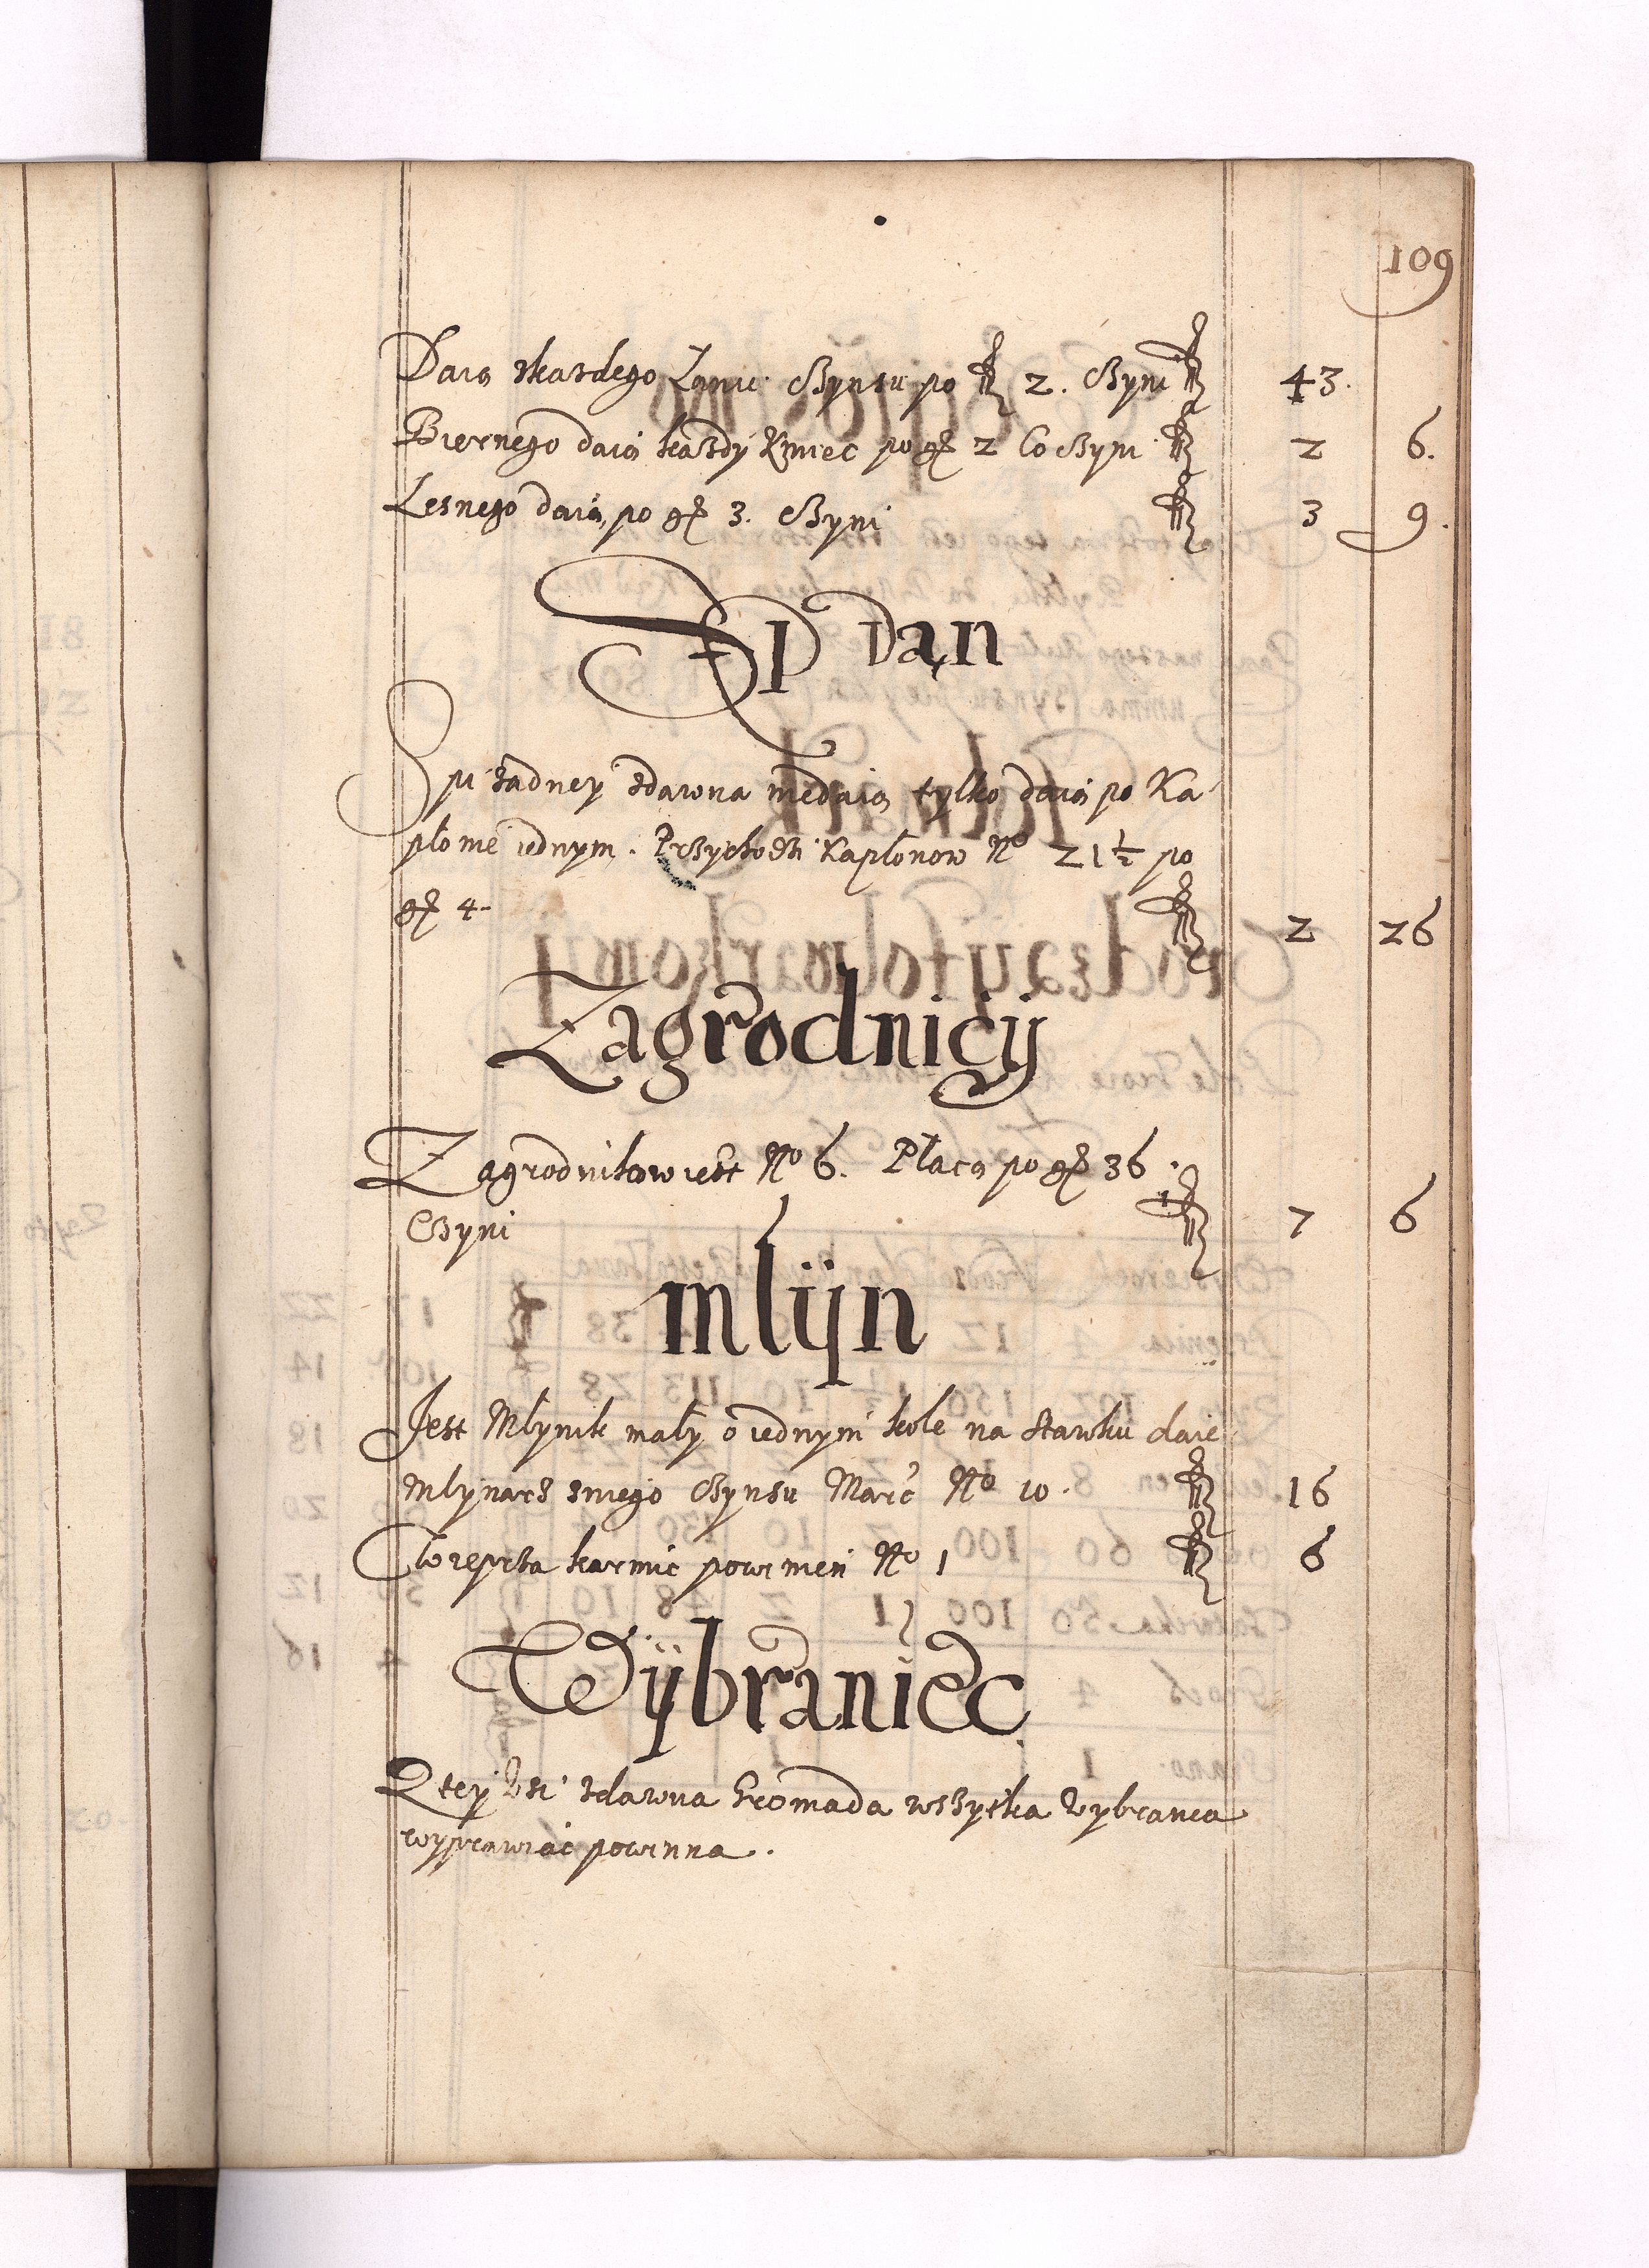 109
Daią zkasdego Łanu Czynsu po fl 2. Czyni fl 43.
Biernego daią kazdy Kmiec po gr 2 Co czyni fl 2 6.
Lesnego daią, po gr 3. Czyni fl 3 9.
Sp Dan
Sp zadney zdawna niedaią tylko daią po Ka
płonie iednym. Przychodzi Kapłonow No 21 1/2 po
gr 4. fl 2 26
Zagrodnicÿ
Zagrodnikow iest No 6. Płacą po gr 36.
Czyni fl 7 6
mlÿn
Jest Młynik mały o iednym kole na stawku daie
Młynarz sniego Czynsu Marc No 10. fl 16
wieprza karmic powinien No 1 fl 6
Wÿbraniec
Z tey Wsi zdawna Gromada wszytka Wybranca
wyprawiac powinna.